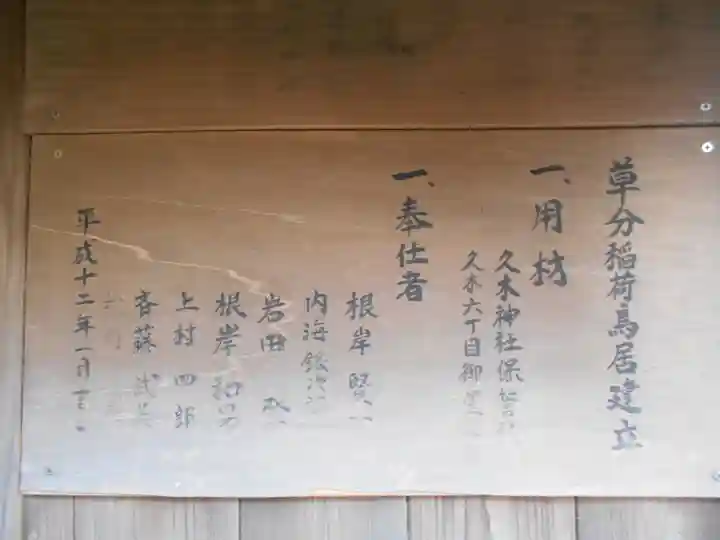 草分稲荷鳥居建立
一、用材
久木神社保
久木六丁目御
一、奉仕者
根岸 賢
内海 銀次
岩田
根岸 和
上村 四郎
斉藤 武
平成十二年一月